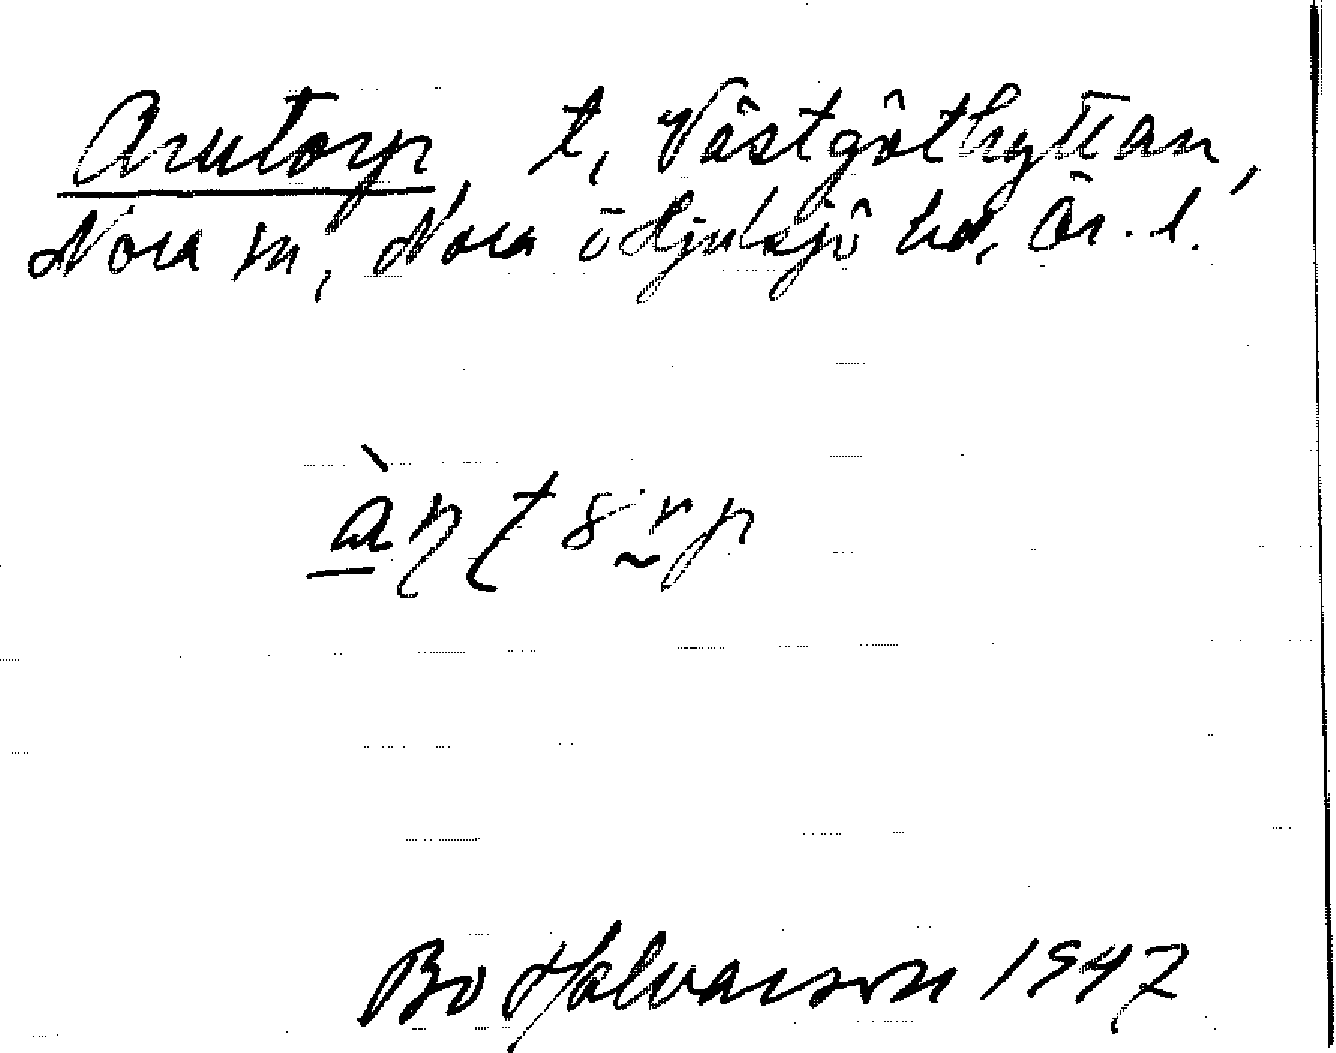 Arntorp, t, Västgöthyttan,
Nora sn, Nora o Hjulsjö hd, Ör. l.
Bo Halvarson 1947